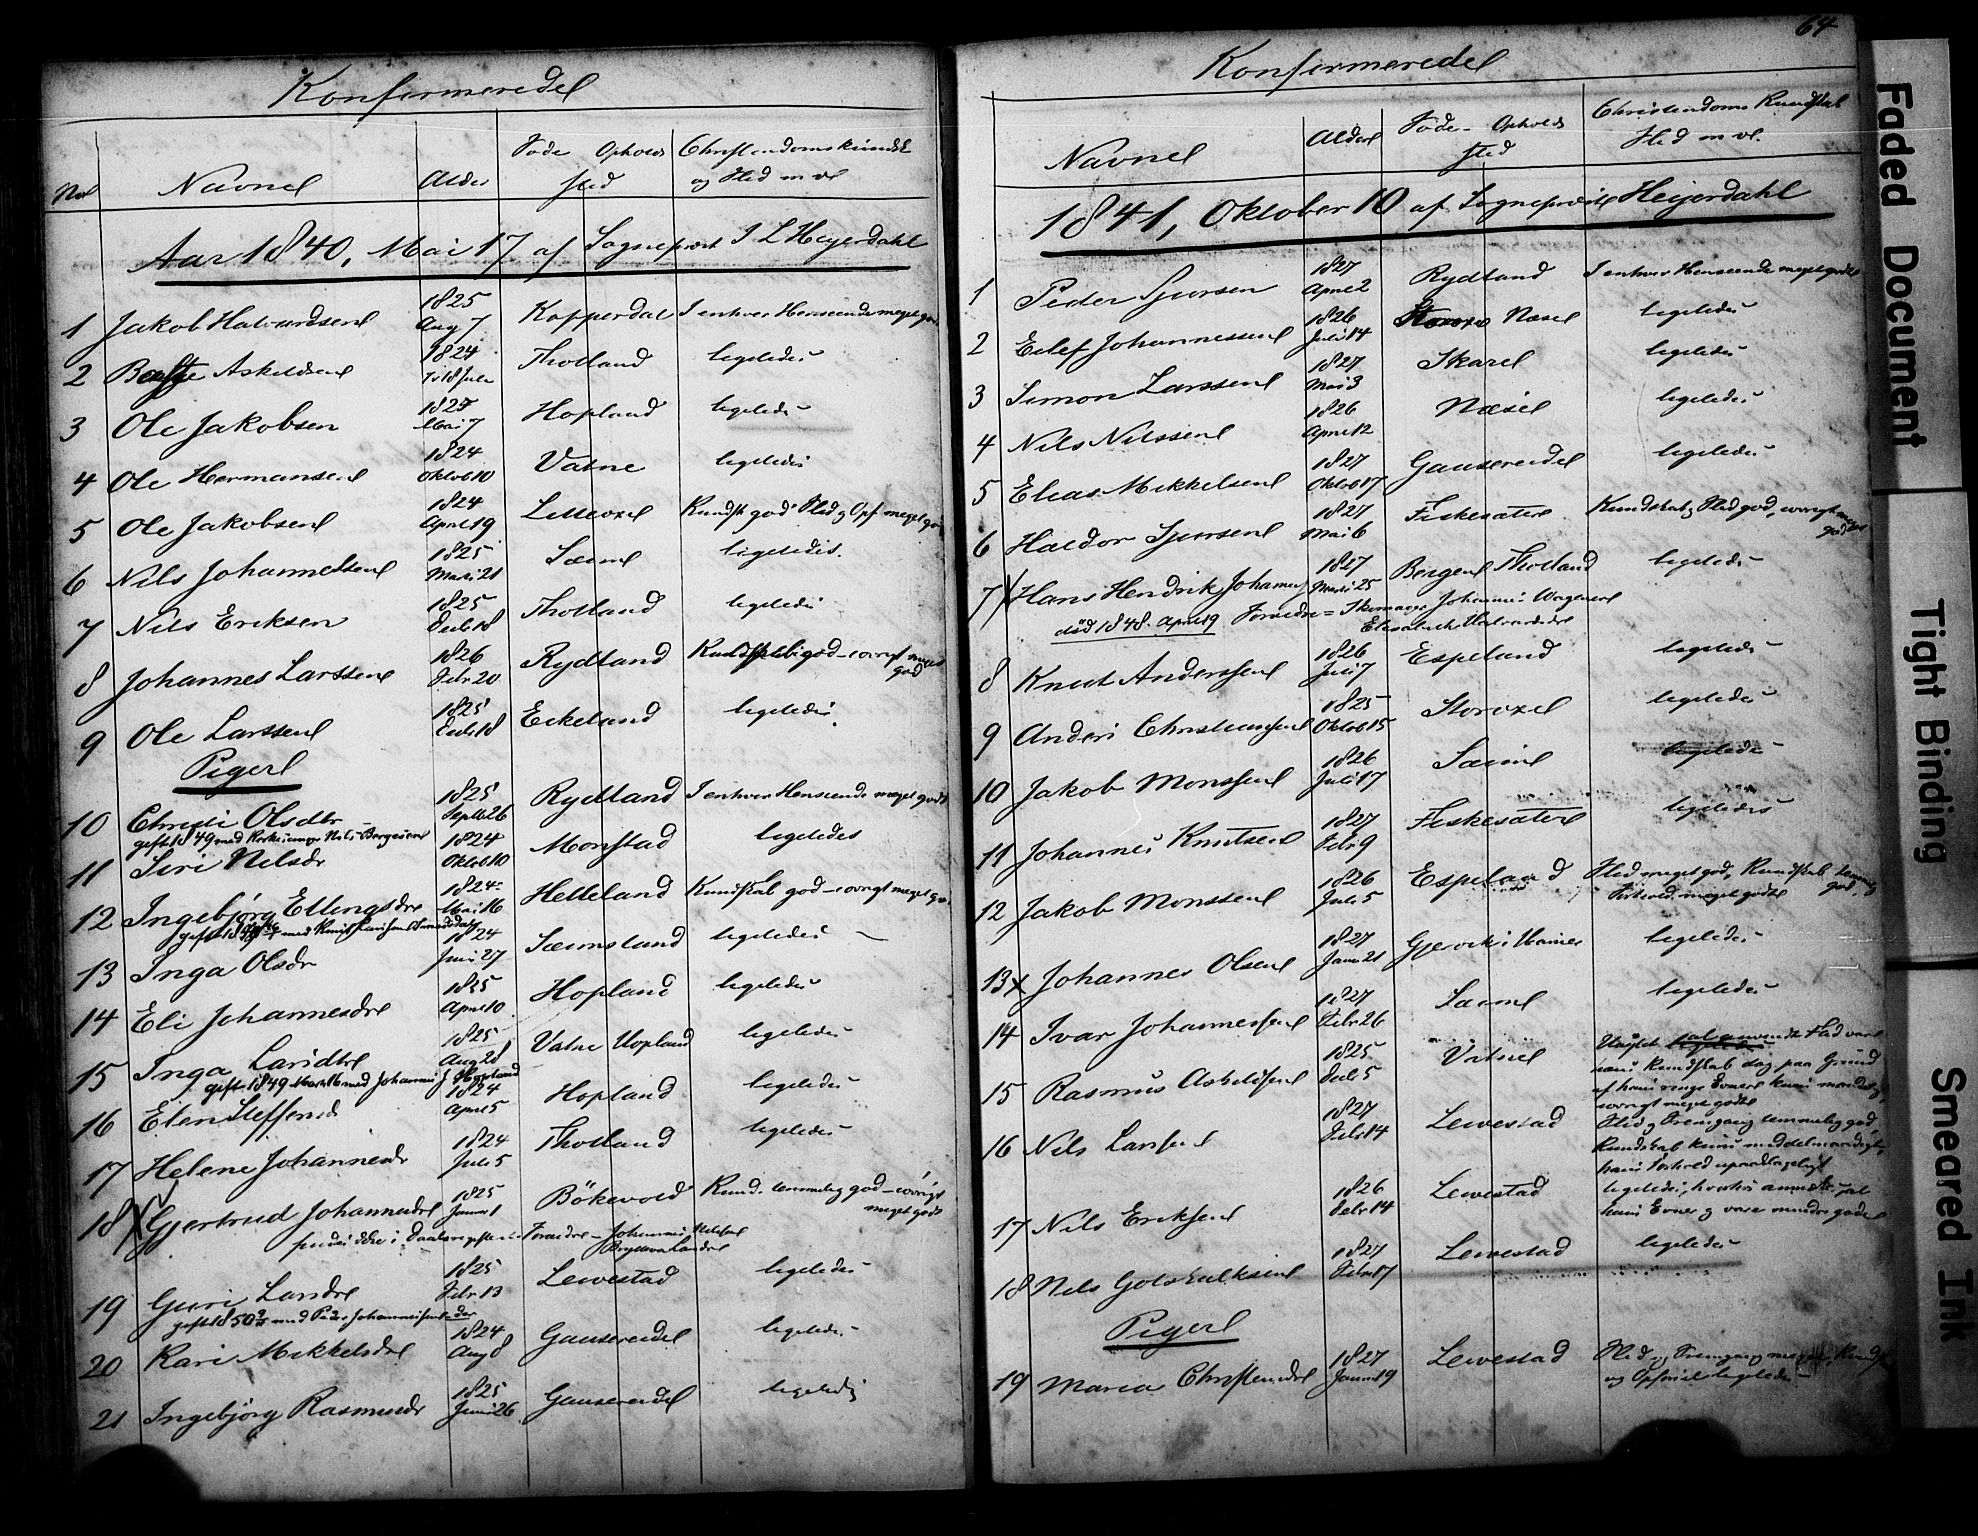 Konfirmerede
No Navne Alder Føde Opholds sted Christendomskundsk og Flid m v
Aar 1840, Mai 17 af Sognepræst J L Heyerdahl
1 Jakob Halvardsen 1825 Aug 7 Kopperdal I enhver Henseende meget god
2 Askeldsen 1824 Juli Thotland ligeledes
3 Ole Jakobsen 1825 Mai 7 Hopland ligeledes
4 Ole Hermansen 1824 Oktob 10 Vatne ligeledes
5 Ole Jakobsen 1824 April 19 Lilleoxe Kundsk god Flid og Opf meget god
6 Nils Johannessen 1825 Marts 21 Sæim ligeledes.
7 Nils Eriksen 1825 Decb 18 Thotland ligeledes
8 Johannes Larssen 1826 Febr 20 Rydland god - iøvrigt meget god
9 Ole Larssen 1825 Decb 18 Eikeland ligeledes
Piger
10 Christi Olsdtr 1825 Septb 26 Rydland I enhver Henseende meget godt
gift 1849 med Nils Børgesen
11 Siri Nilsdr 1824 Oktob 10 Monstad ligeledes
12 Ingebjørg Ellingsdr 1824 Mai 16 Helleland Kundskab god - iøvrigt meget god
13 Inga Olsdr 1824 Juni 27 Sæimsland ligeledes
14 Eli Johannesdr 1825 April 10 Hopland ligeledes
15 Inga Larsdtr 1825 Aug 28 Vatne Hopland ligeledes
gift 1849 med Johannes J Hopland
16 Elen Steffensd 1824 April 5 Hopland ligeledes
17 Helene Johannesdr 1824 Juli 5 Thotland ligeledes
18 Gjertrud Johannesdr 1825 Januar 1 Bökevold Kund. temmelig god - iøvrigt meget godt
findes ikke i Daabsregisteret Forældre - Johannes
19 Guri Larsdr 1825 Febr 13 Levestad ligeledes
gift 1850 med Peder Johannessen
20 Kari Mikkelsdr 1824 Aug 8 Gausereidet ligeledes
21 Ingebjörg Rasmusdr 1825 Juni 26 Gausereidet ligeledes
64
Konfirmerede
Navne Alder Føde- Opholds sted Christendoms Kundskab Flid m v.
1841, Oktober 10 af Sognepræst Heyerdahl
1 Peder Sjursen 1827 April 2 Rydland I enhver Henseende meget godt
2 Eilef Johannessen 1826 Juli 14 Næse ligeledes
3 Simon Larssen 1827 Mai 3 Skare ligeledes
4 Nils Nilssen 1826 April 12 Næse ligeledes
5 Elias Mikkelsen 1827 Oktob 17 Gausereidet ligeledes
6 Haldor Sjursen 1827 Mai 6 Fiskesæter Kundskab, Flid god, iøvrigt meget god
7 Hans Hendrik Johannes 1827 Marts 25 Bergen Thotland ligeledes
död 1848. April 9 Forældre = Skomager Johannes Wagener
Elisabeth Halvardsdr
8 Knut Anderssen 1826 Juli 7 Espeland ligeledes
9 Anders Christensen 1825 Oktob 15 Storoxe ligeledes
10 Jakob Monssen 1826 Juli 17 Sæim ligeledes
11 Johannes Knutsen 1827 Febr 9 Fiskesæter ligeledes
12 Jakob Monssen 1826 Juli 5 Espeland Flid meget god, Kundskab temmelig god, Forhold meget godt
13 x Johannes Olsen 1827 Janr 21 Gjervik i Hamre ligeledes
14 Ivar Johannessen 1827 Febr 26 Sæim ligeledes
15 Rasmus Askeldsen 1825 Decb 5 Vatne
hans Kundskab dog paa Grund
af hans ringe Evner kun maadelig,
iøvrigt meget godt
16 Nils Larssen 1827 Febr 14 Levestad Flid og Fremgang temmelig god,
Kundskab kun middelmaadigt,
hans Forhold upaaklageligt
17 Nils Eriksen 1826 Febr 14 Levestad ligeledes, hvorhos anmærkes, at
hans Evner og vare mindre gode
18 Nils Gotskalksen 1827 Febr 17 Levestad ligeledes
Piger
19 Maria Christensdr 1827 Januar 19 Levestad Flid og Fremgang
og Opførsel ligeledes
Faded Document
Tight Binding
Smeared Ink